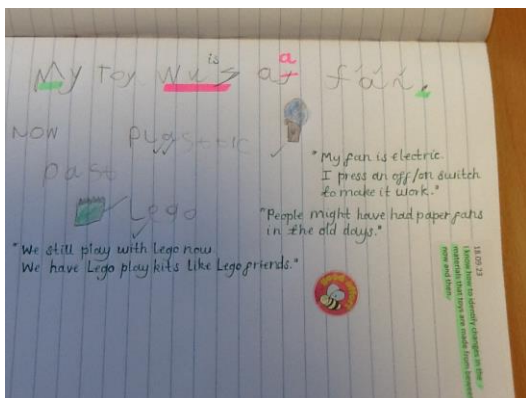 is a
My Toy wus at fan.
NOW plasttic
past
Lego
"My fan is electric.
I press an off/on switch
to make it work."
"People might have had paper fans
in the old days."
"We still play with Lego now.
We have Lego play kits like Lego friends."
18.09.23
I know how to identify changes in the
materials that toys are made from between
now and then.